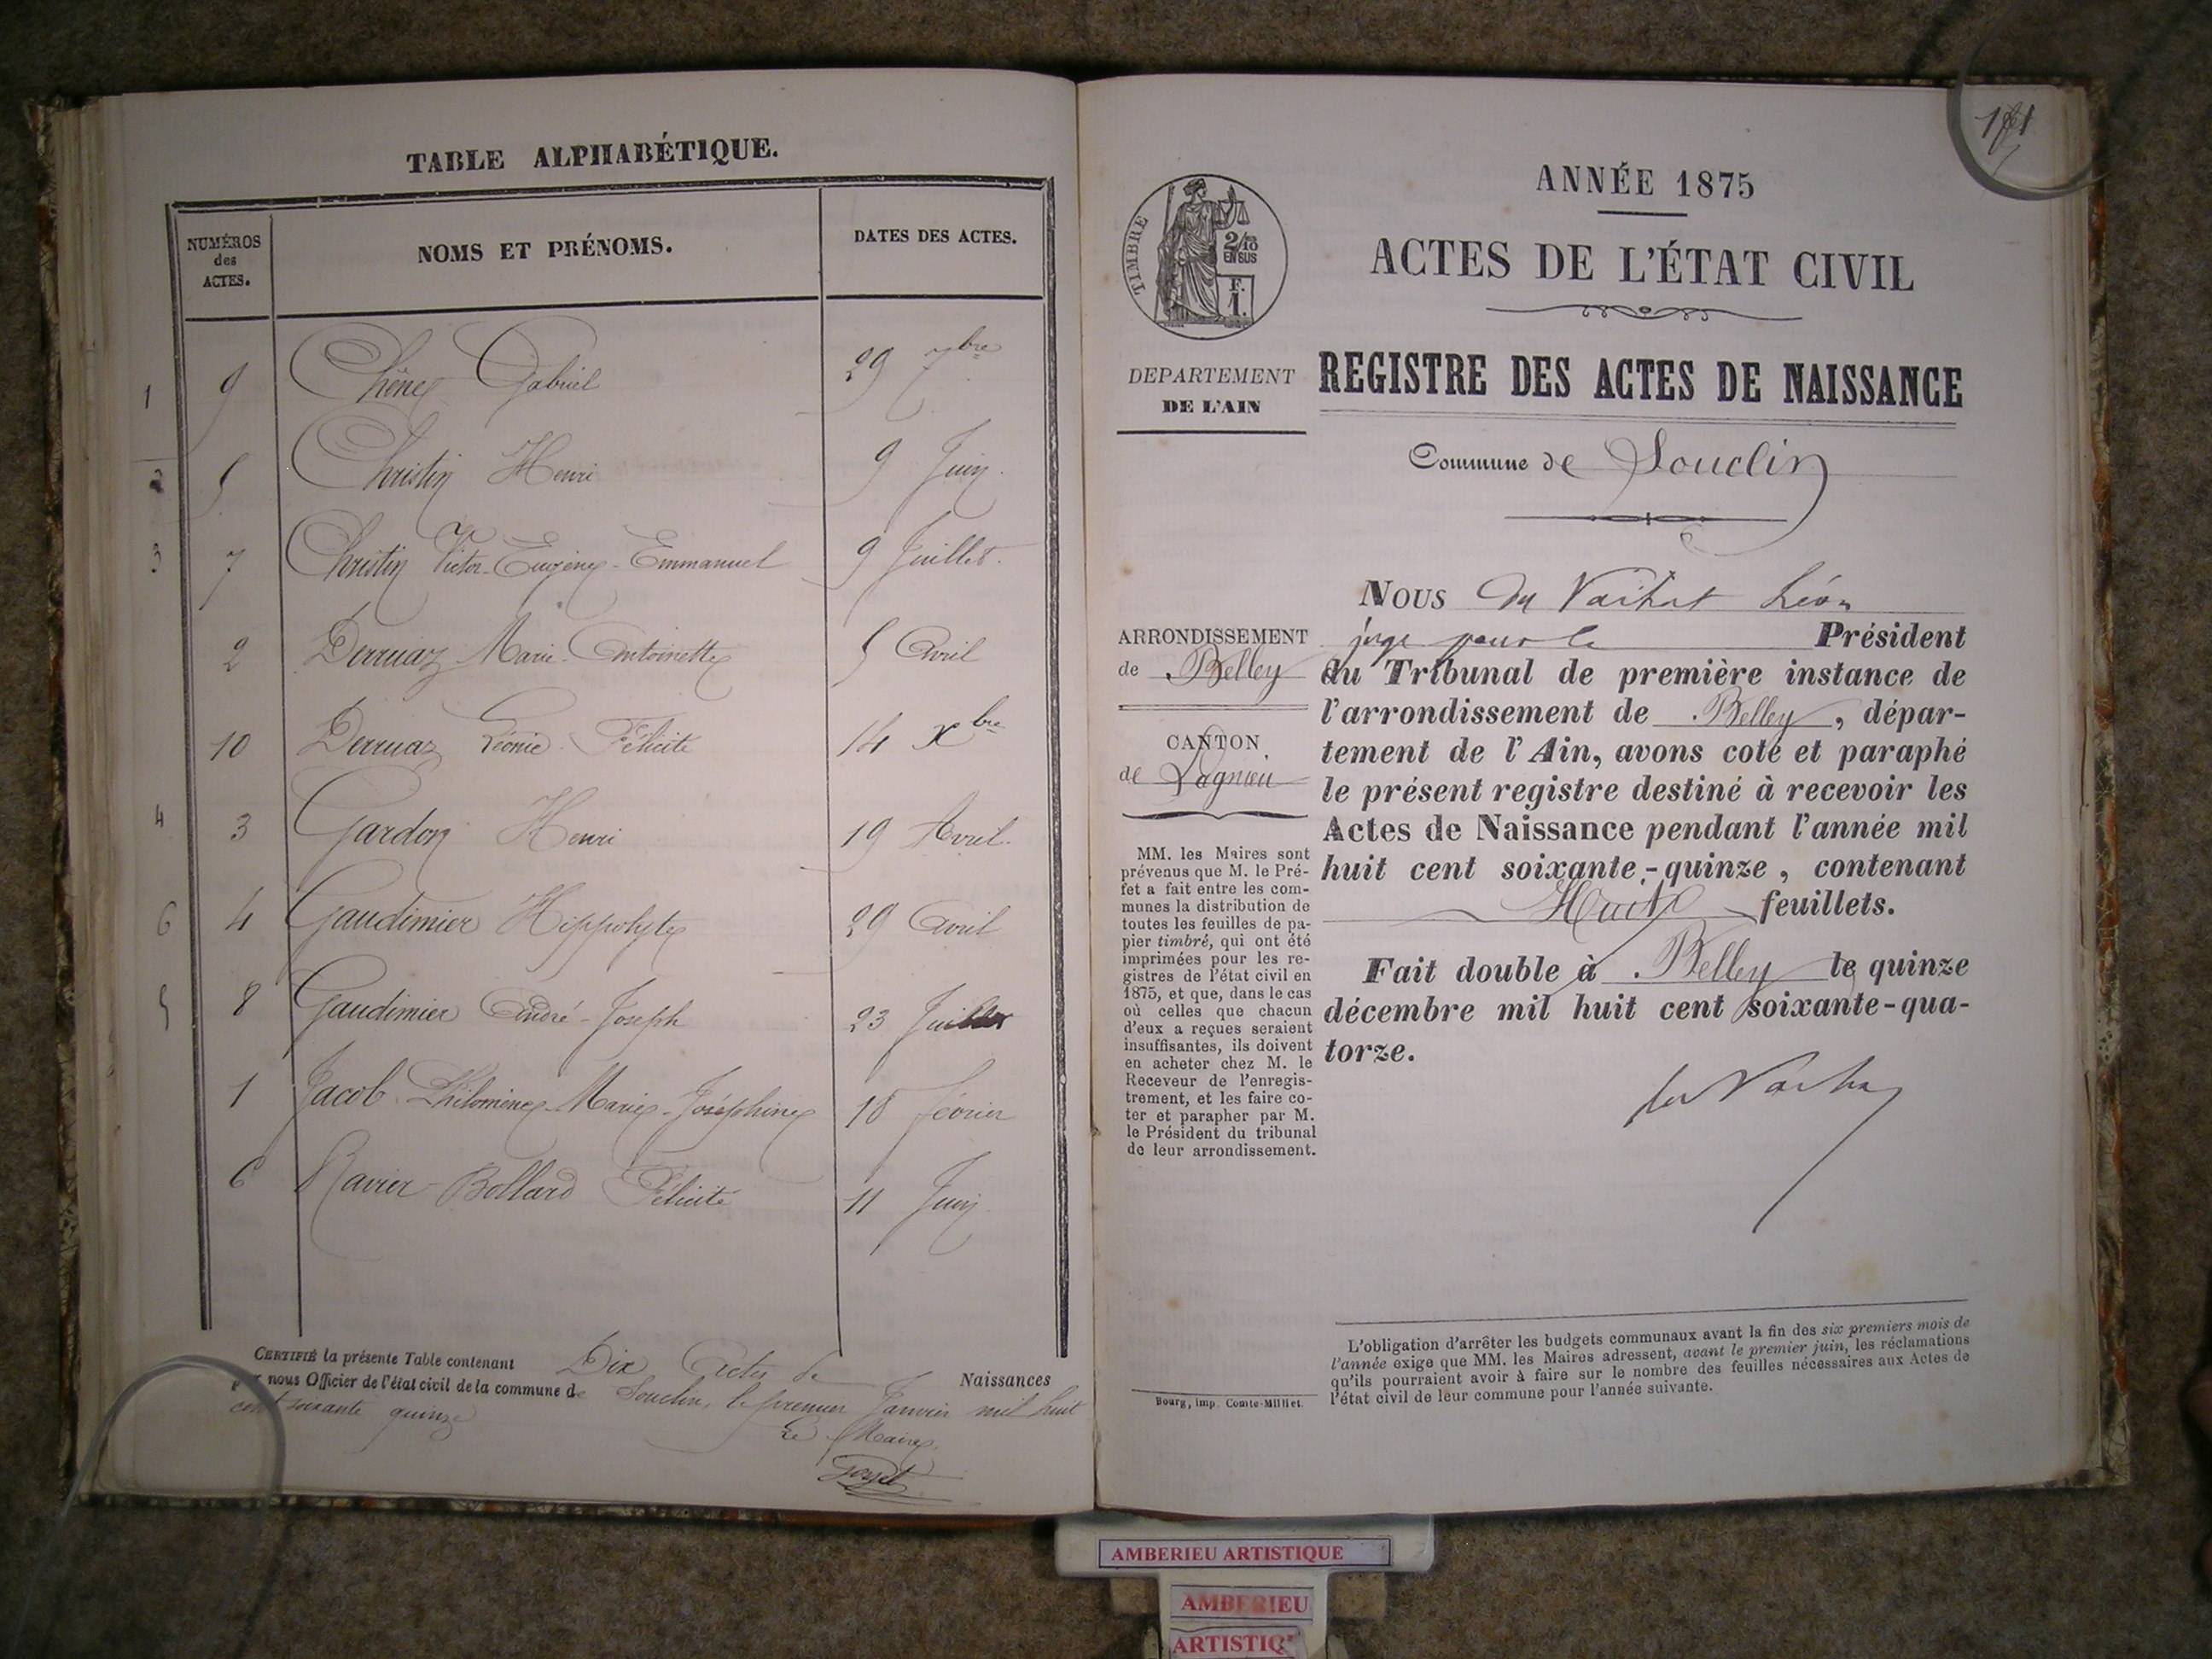 TABLE ALPHABÉTIQUE.
NUMÉROS
des
ACTES.
NOMS ET PRÉNOMS.
DATES DES ACTES.
1 9 Chêne Gabriel 29 7bre
2 5 Christin Henri 9 Juin.
3 7 Christin Victor-Eugène-Emmanuel 9 Juillet.
2 Derruaz Marie-Antoinette 5 Avril
10 Derruaz Léonie Félicité 14 Xbre
4 3 Gardon Henri 19 Avril.
6 4 Gaudimier Hippolyte 29 Avril
5 8 Gaudimier André-Joseph 23 Juillet
1 Jacob Philomène-Marie-Joséphine 18 Février
6 Ravier-Bollard Félicité 11 Juin
CERTIFIÉ la présente Table contenant Dix Actes de Naissances
par nous Officier de l'état civil de la commune de Souclin, le premier Janvier mil huit
cent soixante quinze
Le Maire,
181
ANNÉE 1875
ACTES DE L'ÉTAT CIVIL
TIMBRE
2/10
EN SUS
F.
1.
DEPARTEMENT
DE L'AIN
REGISTRE DES ACTES DE NAISSANCE
Commune de Souclin
ARRONDISSEMENT
de Belley
CANTON
de Lagnieu
MM. les Maires sont
prévenus que M. le Pré-
fet a fait entre les com-
munes la distribution de
toutes les feuilles de pa-
pier timbré, qui ont été
imprimées pour les re-
gistres de l'état civil en
1875, et que, dans le cas
où celles que chacun
d'eux a reçues seraient
insuffisantes, ils doivent
en acheter chez M. le
Receveur de l'enregis-
trement, et les faire co-
ter et parapher par M.
le Président du tribunal
de leur arrondissement.
Bourg, imp. Comte-Milliet.
NOUS du Vachat Léon
juge pour le Président
du Tribunal de première instance de
l'arrondissement de Belley, dépar-
tement de l'Ain, avons coté et paraphé
le présent registre destiné à recevoir les
Actes de Naissance pendant l'année mil
huit cent soixante-quinze, contenant
Huit feuillets.
Fait double à Belley le quinze
décembre mil huit cent soixante-qua-
torze.
du Vachat
L'obligation d'arrêter les budgets communaux avant la fin des six premiers mois de
l'année exige que MM. les Maires adressent, avant le premier juin, les réclamations
qu'ils pourraient avoir à faire sur le nombre des feuilles nécessaires aux Actes de
l'état civil de leur commune pour l'année suivante.
AMBERIEU ARTISTIQUE
AMBERIEU
ARTISTIQ